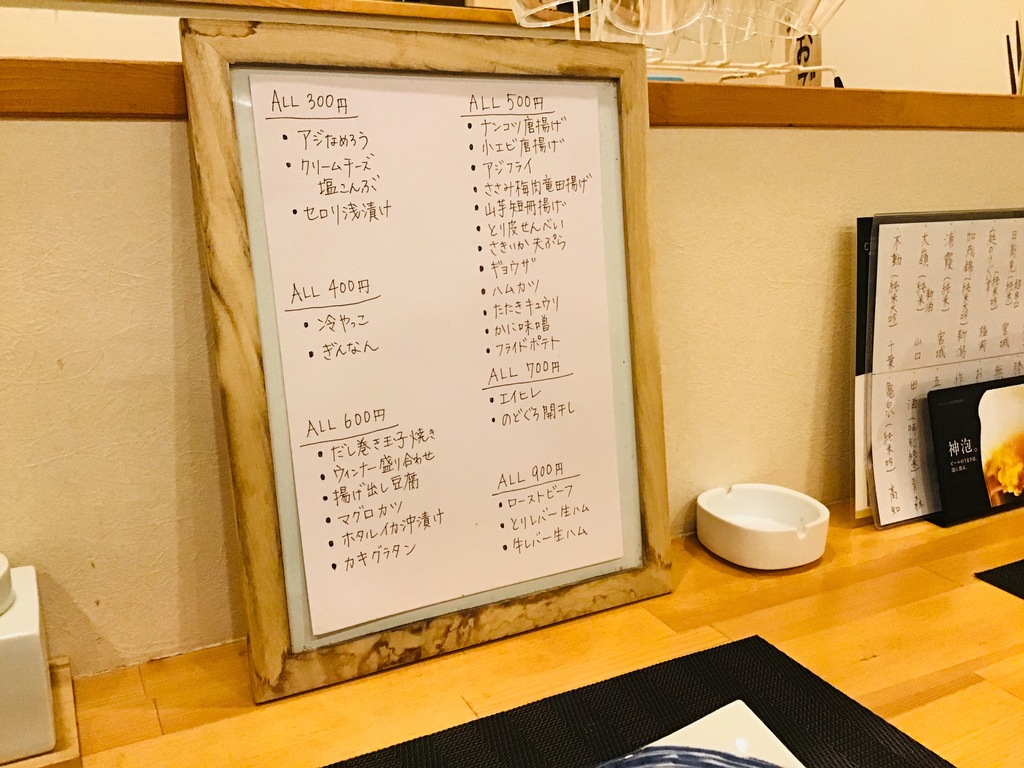 ALL 300円
・アジなめろう
・クリームチーズ
塩こんぶ
・セロリ浅漬け
ALL 400円
・冷やっこ
・ぎんなん
ALL 600円
・だし巻き玉子焼き
・ウィンナー盛り合わせ
・揚げ出し豆腐
・マグロカツ
・ホタルイカ沖漬け
・カキグラタン
ALL 500円
・ナンコツ唐揚げ
・小エビ唐揚げ
・アジフライ
・ささみ梅肉竜田揚げ
・山芋短冊揚げ
・とり皮せんべい
・さきいか天ぷら
・ギョウザ
・ハムカツ
・たたきキュウリ
・かに味噌
・フライドポテト
ALL 700円
・エイヒレ
・のどぐろ開干し
ALL 900円
・ローストビーフ
・とりレバー生ハム
・牛レバー生ハム
おで
加茂錦（純米大吟）新潟
浦霞（純米）宮城
大嶺（純米）山口
不動（純米大吟）千葉
福岡
宮城
亀泉（純米吟）高知
田酒（特別純米）青森
神泡。